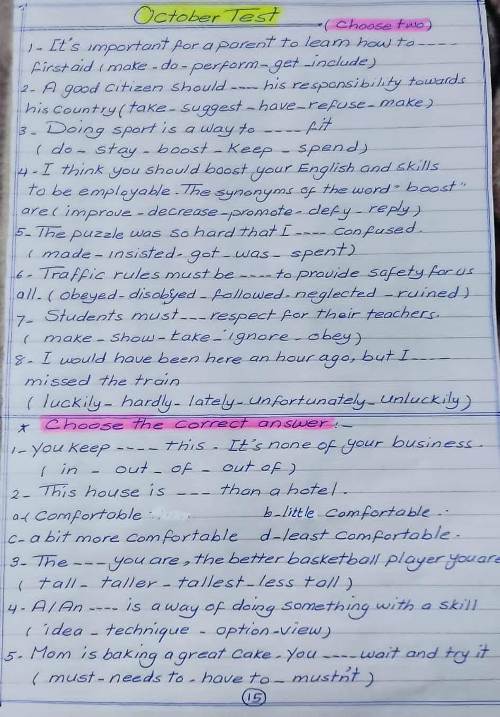 October Test
(Choose two)
1- It's important for a parent to learn how to ----
first aid (make - do - perform - get - include)
2- A good citizen should ---- his responsibility towards
his country (take - suggest - have - refuse - make)
3- Doing sport is a way to ---- fit
( do - stay - boost - keep - spend)
4- I think you should boost your English and skills
to be employable. The synonyms of the word "boost"
are ( improve - decrease - promote - defy - reply)
5- The puzzle was so hard that I ---- confused.
( made - insisted - got - was - spent)
6- Traffic rules must be ---- to provide safety for us
all. ( obeyed - disobyed - followed - neglected - ruined)
7- Students must --- respect for their teachers.
( make - show - take - ignore - obey)
8- I would have been here an hour ago, but I ----
missed the train
( luckily - hardly - lately - unfortunately - unluckily)
* Choose the correct answer :-
1- you keep ---- this. It's none of your business.
( in - out - of - out of )
2- This house is --- than a hotel.
a-( Comfortable b-little comfortable.
c- a bit more comfortable d-least comfortable.
3- The ---- you are, the better basketball player you are
( tall - taller - tallest - less tall )
4- A/An ---- is a way of doing something with a skill
( idea - technique - option - view)
5- Mom is baking a great cake. You ---- wait and try it
( must - needs to - have to - mustn't )
15